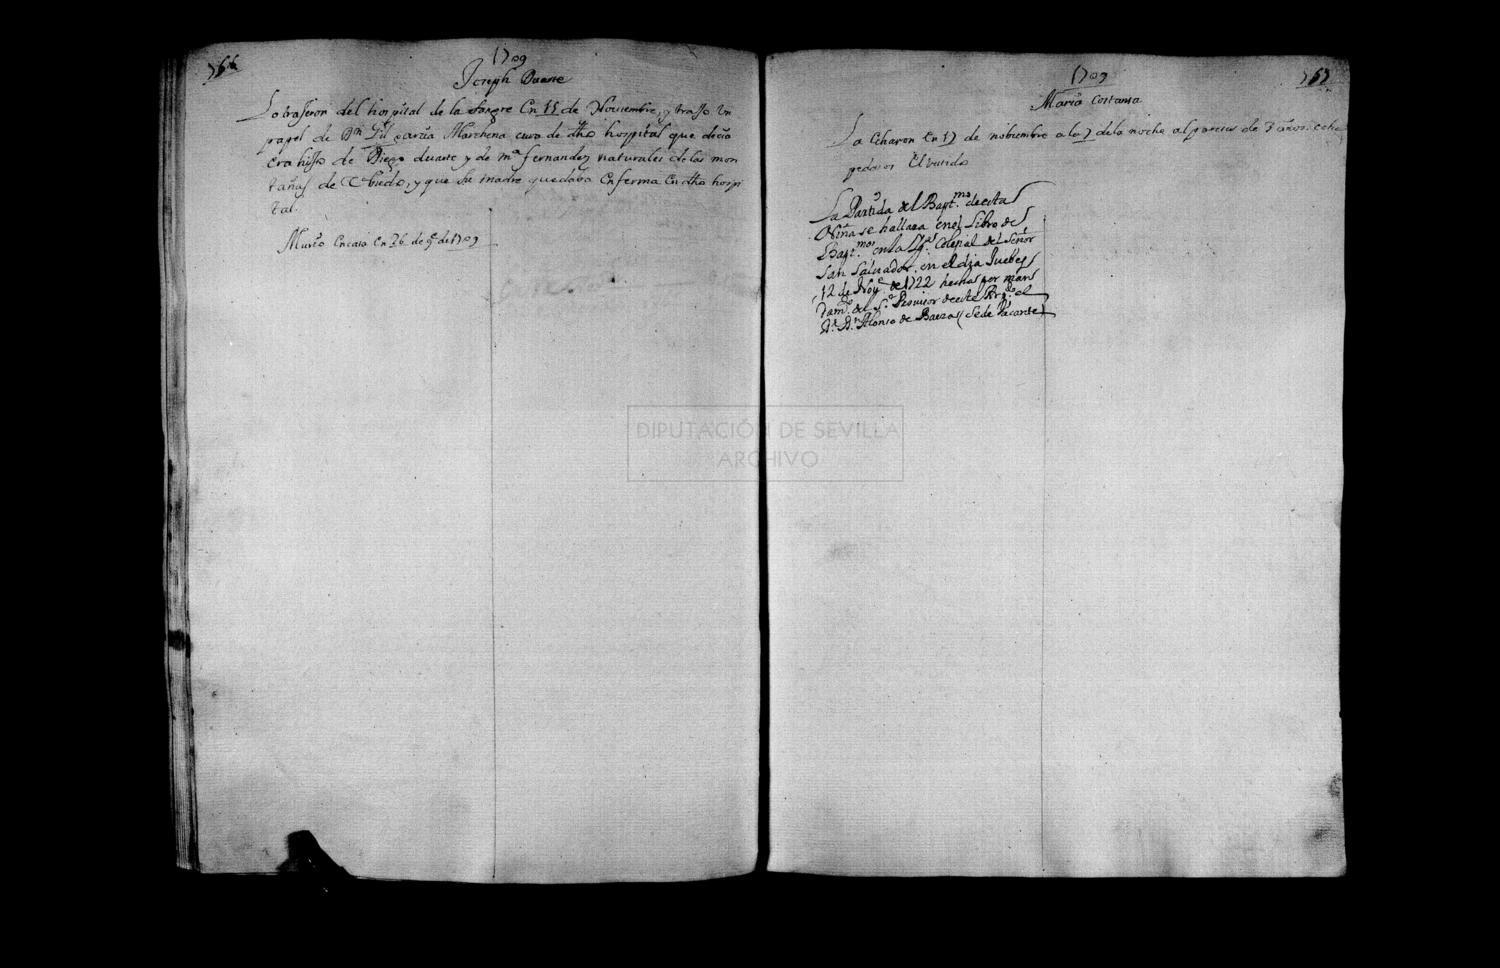 766
1709
Joseph Duarte
Lo trajeron del hospital de la sangre en 15 de Noviembre, y trajo un
papel de Dn Gil garcia Marchena cura de dho hospital que decia
era hijo de Diego duarte y de ma fernandez naturales de las mon
tañas de Obiedo, y que su madre quedaba enferma en dho hospi
tal.
Murio en casa en 26 de 9e de 1709
1709
767
Maria Costansa
La Echaron en 17 de nobiembre a la 7 de la noche al parecer de 3 años
El vestido
La Partida del Baptmo de esta
Niña se hallara en el Libro de
Baptmos en la Igª Colegial del Señor
San Salvador, en el dia Juebes
12 de Nove de 1722 hecha por man
damto del Sr Provisor de este Arzdo el
Dr Dn Alonso de Baeza (Sede Vacante)
DIPUTACIÓN DE SEVILLA
ARCHIVO